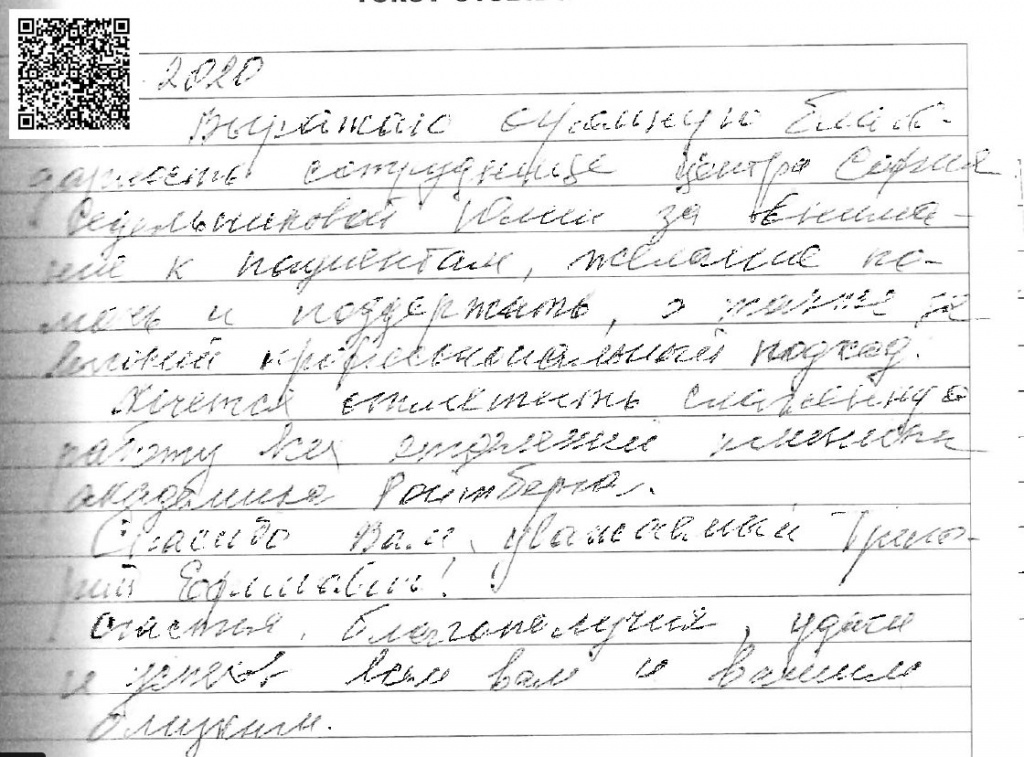 2020
Выражаю огромную благо-
дарность сотруднице центра София
Седельниковой Юлии за внима-
ние к пациентам, желание по-
мочь и поддержать, а также за
высокий профессиональный подход.
Хочется отметить слаженную
работу всех отделений клиники
академика Ройтберга.
Спасибо Вам, уважаемый Григо-
рий Ефимович!
Счастья, благополучия, удачи
и успехов всем вам и вашим
близким.